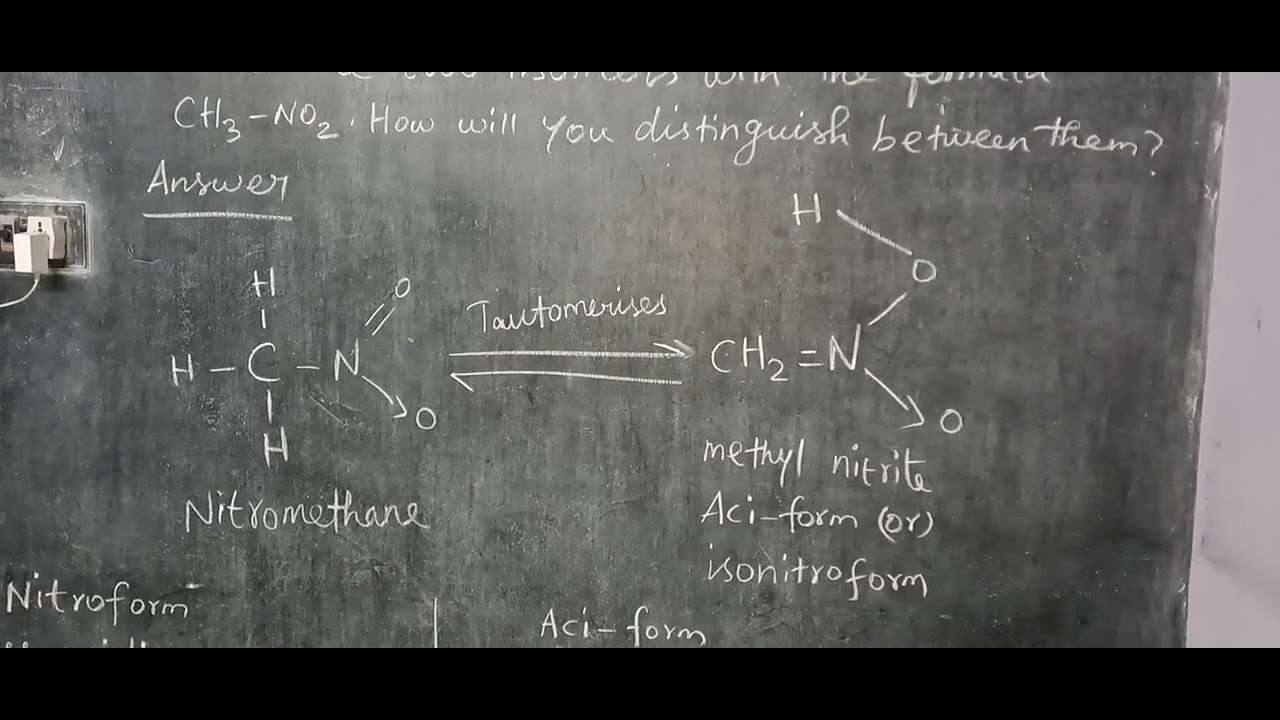 with the formula
CH3-NO2. How will you distinguish between them?
Answer
H
H - C - N = O → O
H
Nitromethane
Tautomerises
H
O
CH2=N → O
methyl nitrite
Aci-form (or)
isonitroform
Nitroform
Aci-form